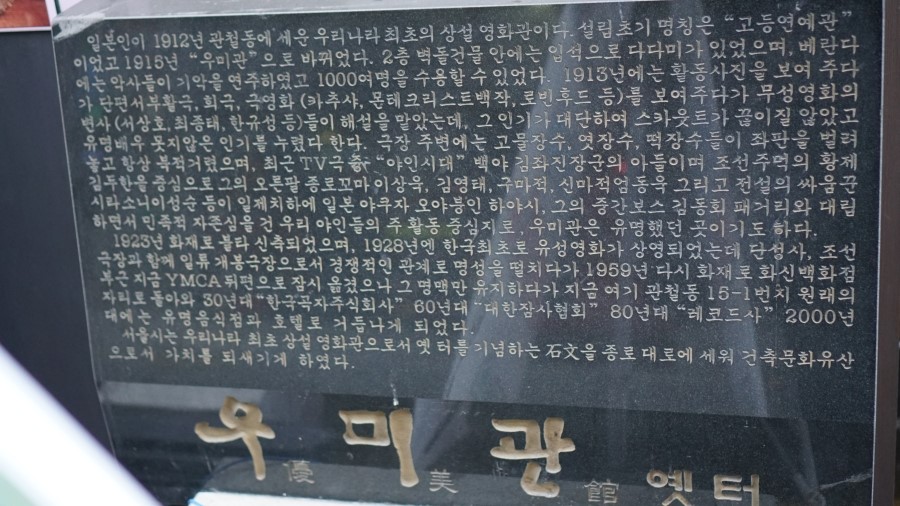 일본인이 1912년 관철동에 세운 우리나라 최초의 상설 영화관이다. 설립초기 명칭은 “고등연예관”
이었고 1915년 “우미관” 으로 바뀌었다. 2층 벽돌건물 안에는 입석으로 다다미가 있었으며, 베란다
에는 악사들이 기악을 연주하였고 1000여명을 수용할 수 있었다. 1913년에는 활동사진을 보여 주다
가 단편서부활극, 희극, 국영화 (카추샤, 몬테크리스트백작, 로빈후드 등)를 보여주다가 무성영화의
변사 (서상호, 최종태, 한규성 등)들이 해설을 맡았는데, 그 인기가 대단하여 스카웃트가 끊이질 않았고
유명배우 못지않은 인기를 누렸다 한다. 극장 주변에는 고물장수, 엿장수, 떡장수들이 좌판을 벌려
놓고 항상 북적거렸으며, 최근 TV극 “야인시대” 백야 김좌진장군의 아들이며 조선주먹의 황제
김두한을 중심으로 그의 오른팔 종로꼬마 이상욱, 김영태, 구마적, 신마적엄동욱 그리고 전설의 싸움꾼
시라소니이성순 등이 일제치하에 일본 야쿠자 오야붕인 하야시, 그의 중간보스 김동회 패거리와 대립
하면서 민족적 자존심을 건 우리 야인들의 주 활동 중심지로 우미관은 유명했던 곳이기도 하다.
1923년 화재로 불타 신축되었으며, 1928년엔 한국최초로 유성영화가 상영되었는데 단성사, 조선
극장과 함께 일류 개봉극장으로서 경쟁적인 관계로 명성을 떨치다가 1959년 다시 화재로 화신백화점
부근 지금 YMCA 뒤편으로 잠시 옮겼으나 그 명맥만 유지하다가 지금 여기 관철동 15-1번지 원래의
자리로 돌아와 30년대 “한국곡자주식회사” 60년대 “대한잠사협회” 80년대 “레코드사” 2000년
대에는 유명음식점과 호텔로 거듭나게 되었다.
서울시는 우리나라 최초 상설 영화관으로서 옛 터를 기념하는 石文을 종로 대로에 세워 건축문화유산
으로서 가치를 되새기게 하였다.
우미관 옛터
優美館